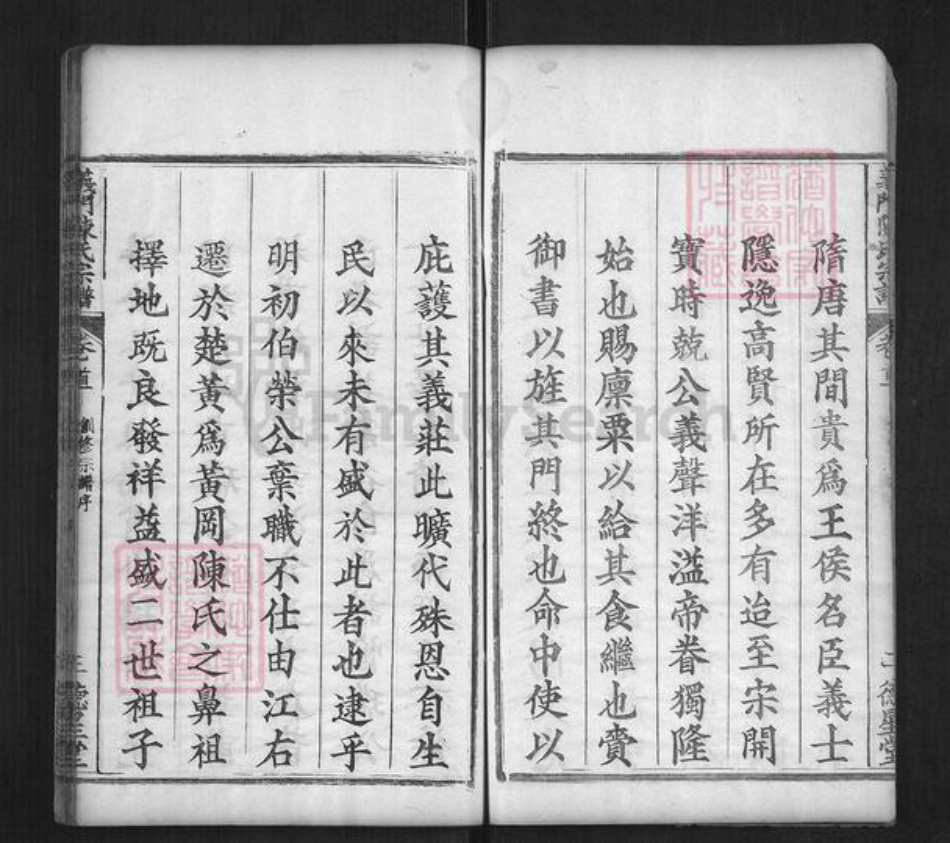 隋唐其間貴爲王侯名臣義士
隱逸高賢所在多有迨至宋開
寶時兢公義聲洋溢帝眷獨隆
始也賜廩粟以給其食繼也賚
御書以旌其門終也命中使以
庇護其義莊此曠代殊恩自生
民以來未有盛於此者也逮乎
明初伯榮公棄職不仕由江右
遷於楚黃爲黃岡陳氏之鼻祖
擇地既良發祥益盛二世祖子
義門陳氏宗譜 卷首 創修宗譜序 三
義門陳氏宗譜 卷首 二 德星堂
FamilySearch